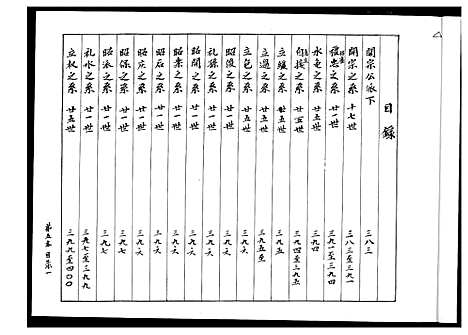 目錄
開宗公派下 三八三
開宗之系 十七世 三八三至三九一
從忠之系 廿一世 三九一至三九四
永屯之系 廿五世 三九四
自援之系 廿五世 三九四至三九五
立緩之系 廿五世 三九五
立通之系 廿五世 三九五至
立色之系 廿五世 三九六
昭俊之系 廿一世 三九六
礼孫之系 廿一世 三九六
昭開之系 廿一世 三九六
昭素之系 廿一世 三九六
昭石之系 廿一世 三九六
昭庄之系 廿一世 三九六
昭保之系 廿一世 三九七
昭添之系 廿一世 三九七
礼水之系 廿一世 三九七至三九九
立权之系 廿五世 三九九至四〇〇
第五本目錄一